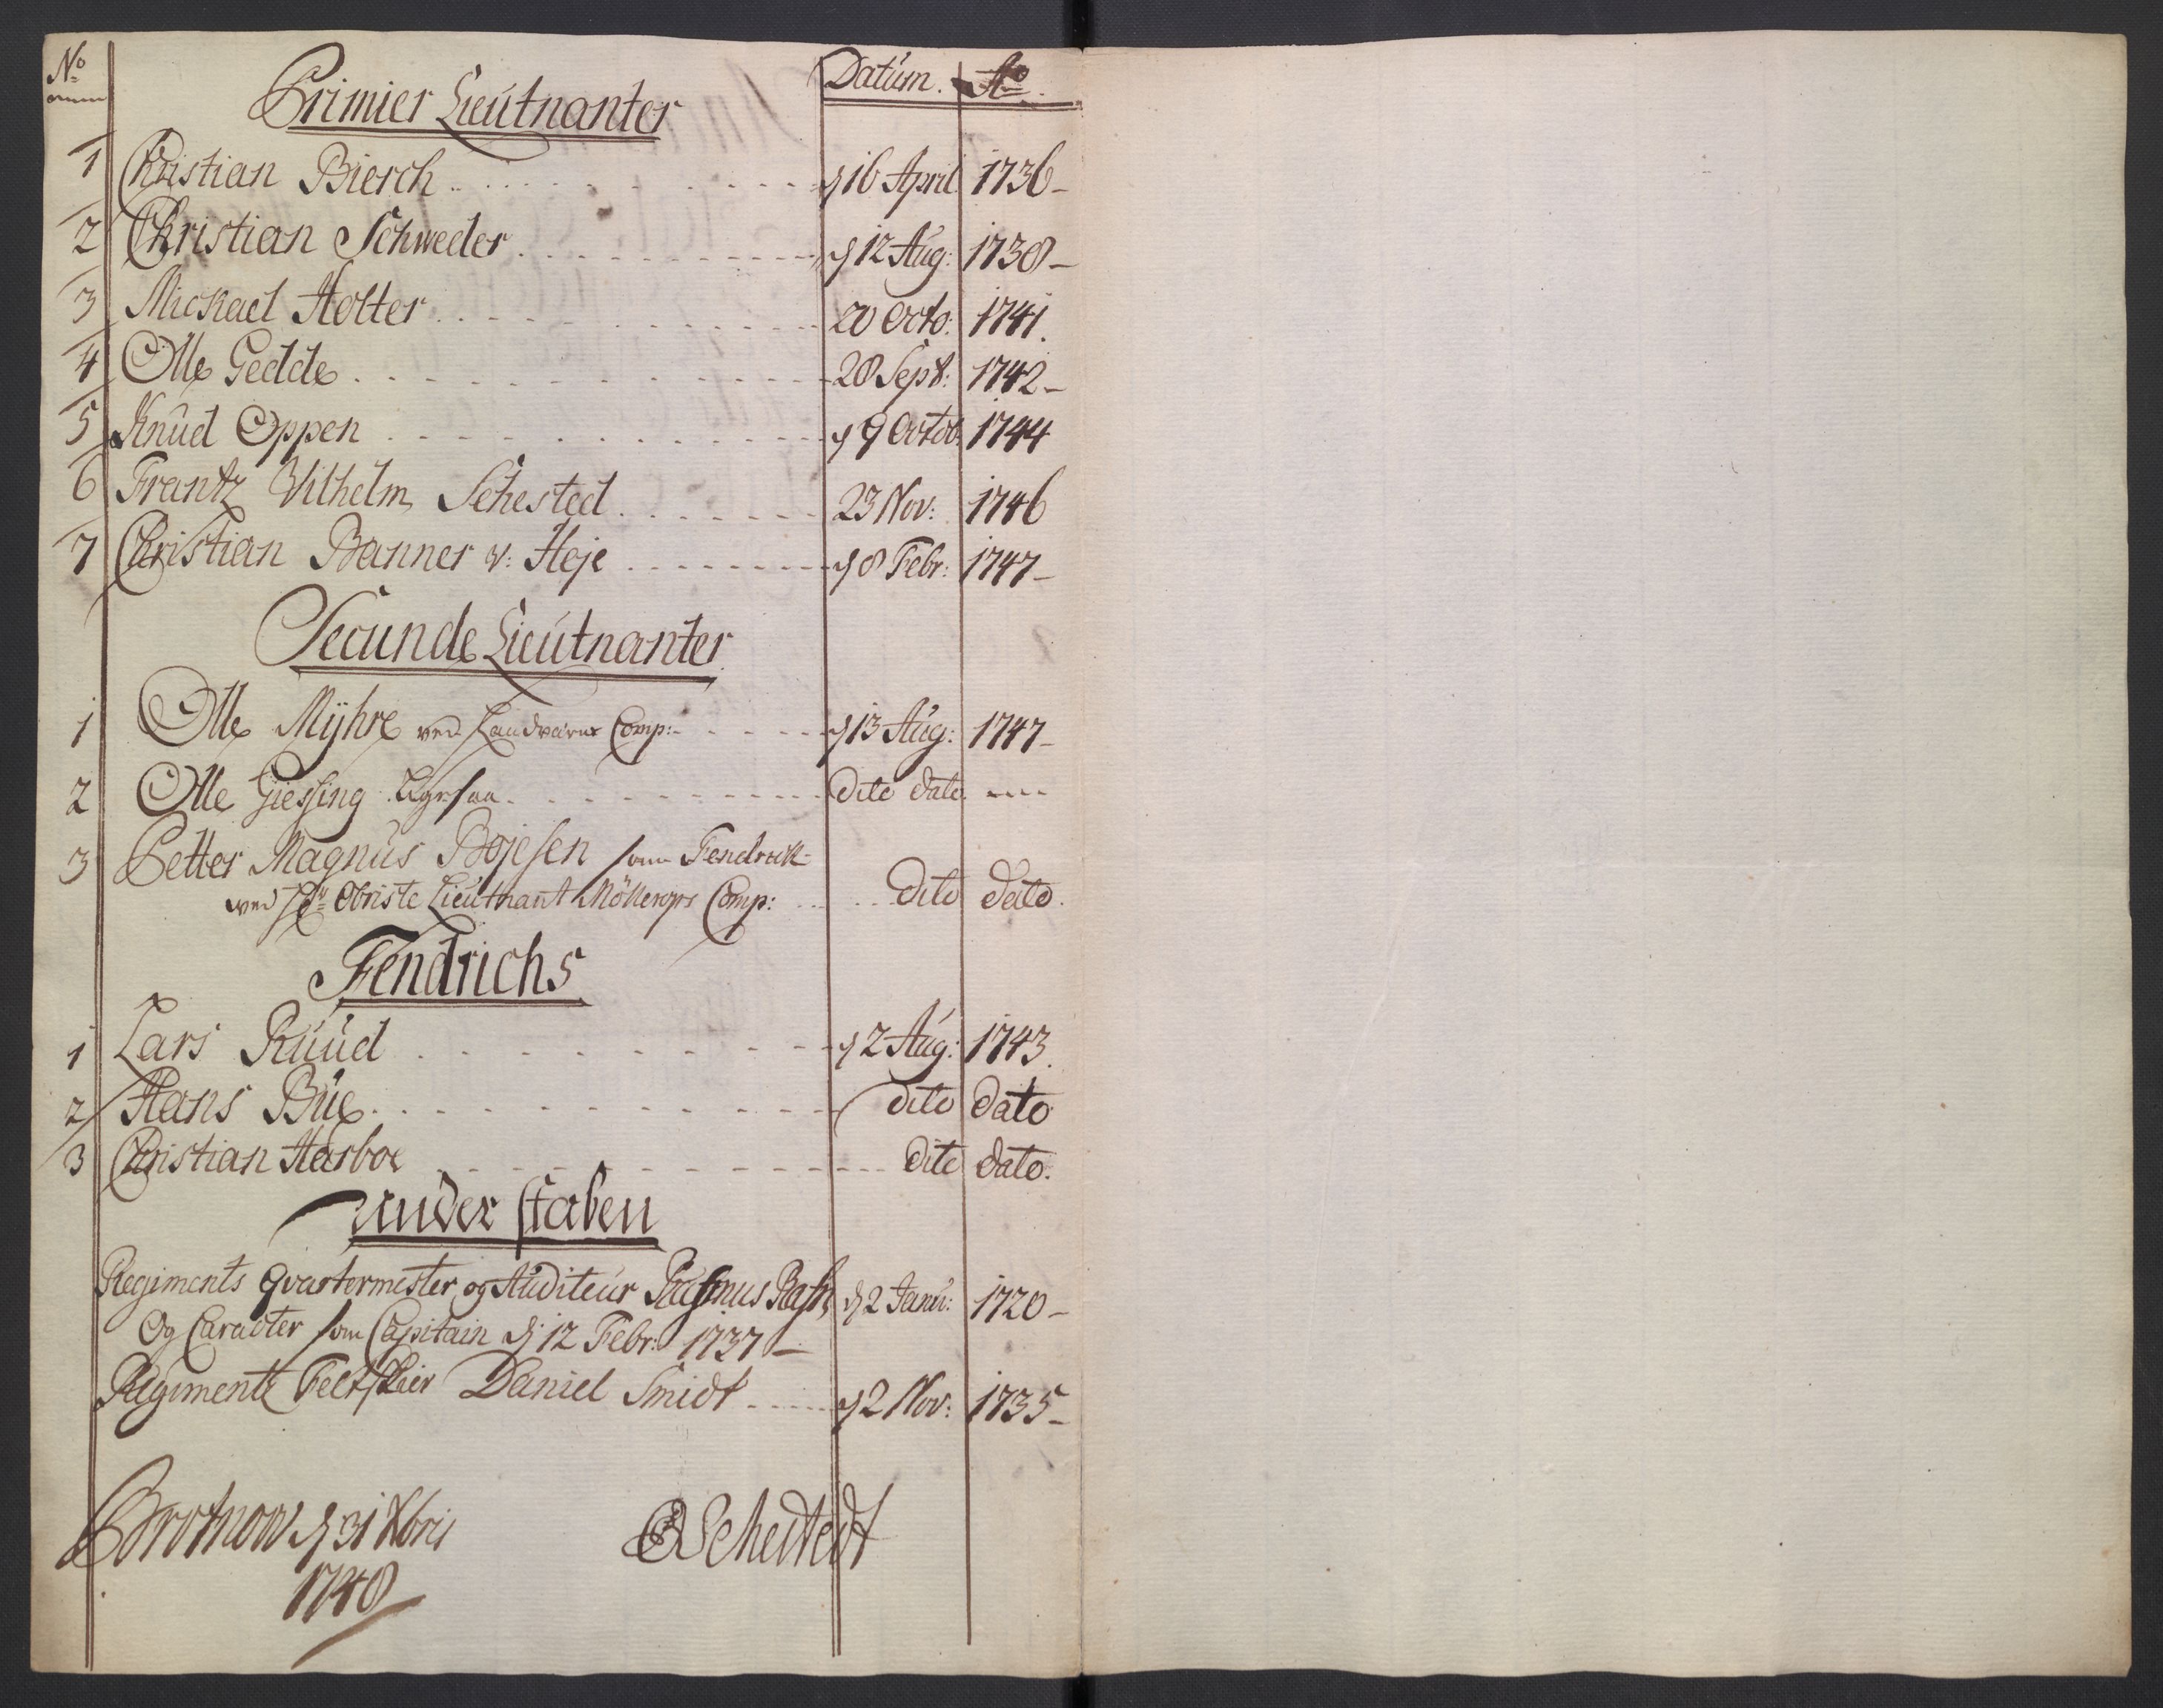 No Datum. Ao
Primier Lieutnanter
1 Christian Bierch d 16 April 1736
2 Christian Schweder d 12 Aug: 1738
3 Mickael Holter 20 Octo: 1741.
4 Olle Gedde 28 Sept: 1742
5 Knud Oppen d 9 Octob: 1744
6 Frantz Vilhelm Sehested 23 Nov: 1746
7 Christian Banner v: Heje d 8 Febr: 1747
Secunde Lieutnanter
1 Olle Mÿhre ved Landværns Comp: d 13 Aug: 1747
2 Olle Giessing ligesaa dito dato
3 Petter Magnus Bojesen som Fendrick
ved Hr Obriste Lieutnant Comp: dito dato.
Fendrichs
1 Lars Ruud d 2 Aug: 1743.
2 Hans Bue dito dato
3 Christian Harboe dito dato.
Under staben
Regiments Qvartermester og Auditeur Rasmus Rasch d 2 Janu: 1720
Og Caracter som Capitain d: 12 Febr: 1737
Regiments Feltskier Daniel Smidt d 2 Nov: 1735
d 31 Xbris
1748